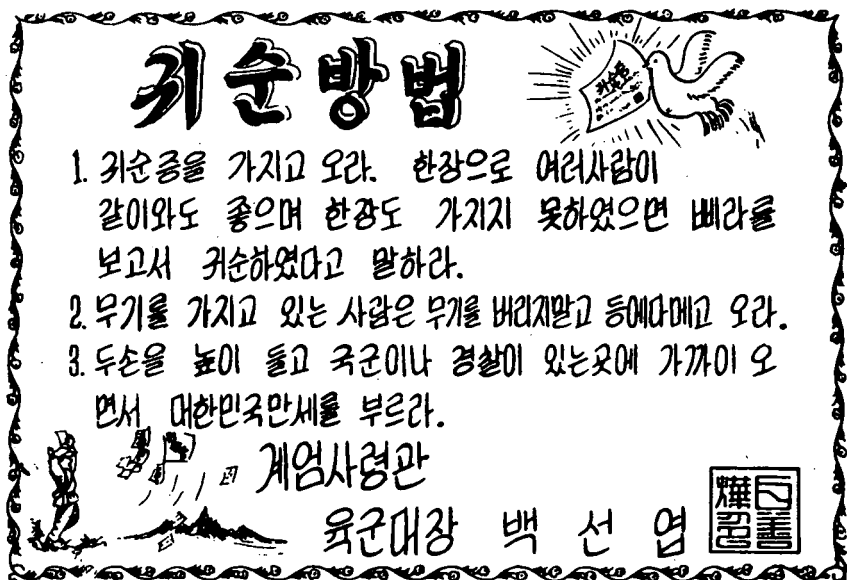 귀순방법
귀순증
1. 귀순증을 가지고 오라. 한장으로 여러사람이
같이와도 좋으며 한장도 가지지 못하였으면 삐라를
보고서 귀순하였다고 말하라.
2. 무기를 가지고 있는 사람은 무기를 버리지말고 등에다메고 오라.
3. 두손을 높이 들고 국군이나 경찰이 있는곳에 가까이 오
면서 대한민국만세를 부르라.
계엄사령관
육군대장 백 선 엽